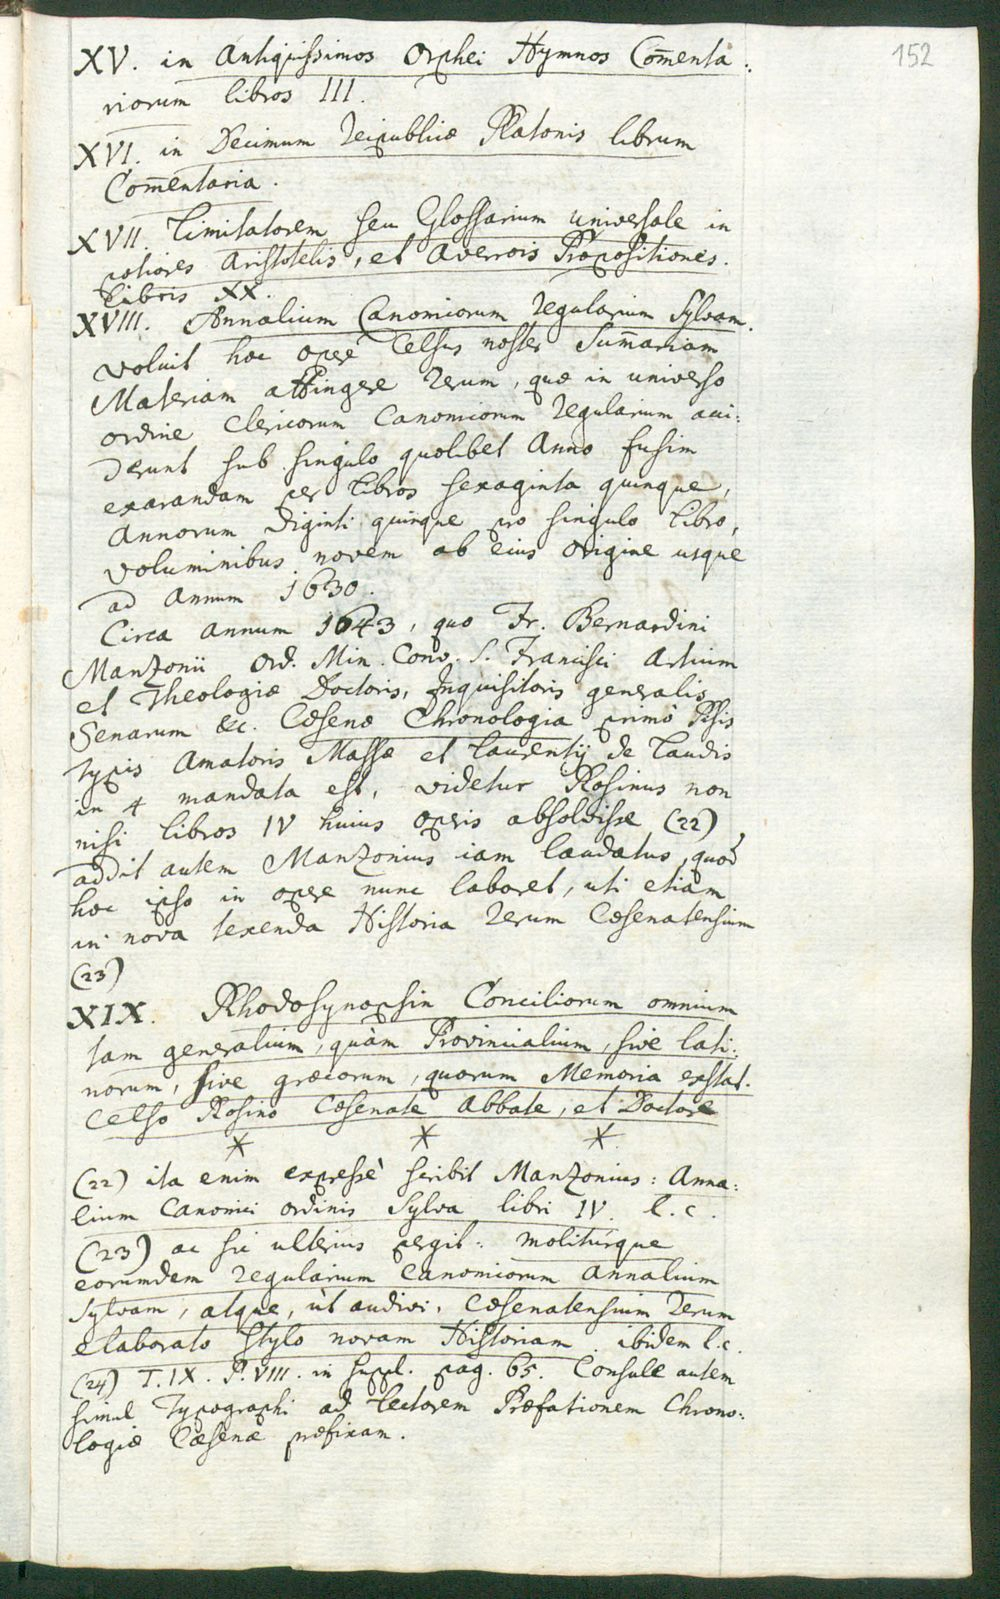 152
XV. in Antiquissimos Orphei Hymnos Com̄enta:
riorum libros III.
XVI. in Decimum Reipublicæ Platonis librum
Com̄entaria.
XVII. Limitatorem seu Glossarium universale in
potiores Aristotelis, et Averrois Propositiones.
Libris XX.
XVIII. Annalium Canonicorum Regularium Sylvam.
voluit hoc opere Celsus noster Sum̄ariam
Materiam attingere rerum, quæ in universo
ordine Clericorum Canonicorum Regularium acci:
derunt sub singulo quolibet Anno fusim
exarandam per Libros sexaginta quinque,
Annorum viginti quinque pro singulo Libro,
voluminibus novem ab eius origine usque
ad Annum 1630.
Circa annum 1643, quo Fr. Bernardini
Manzonii Ord. Min. Conv. S. Francisci Artium
et Theologiæ Doctoris, Inquisitoris generalis
Senarum &c. Cæsenæ Chronologia primò Pisis
typis Amatoris Massæ et Laurentij de Landis
in 4 mandata est, videtur Rosinus non
nisi libros IV huius operis absolvisse (22),
addit autem Manzonius iam laudatus, quod
hoc ipso in opere nunc laboret, uti etiam
in nova texenda Historia rerum Cæsenatensium
(23)
XIX. Rhodosynopsin Conciliorum omnium
tam generalium, quàm Provincialium, sive lati:
norum, sive græcorum, quorum Memoria exstat.
Celso Rosino Cæsenate Abbate, et Doctore
* * *
(22) ita enim expressè scribit Manzonius: Anna:
lium Canonici ordinis Sylva libri IV. l. c.
(23) ac sic ulterius pergit: moliturque
eorumdem regularium Canonicorum Annalium
Sylvam, atque, ùt audivi, Cæsenatensium rerum
elaborato stylo novam Historiam ibidem l.c.
(24) T. IX. P. VIII. in suppl. pag. 65. Consule autem
simul Typographi ad Lectorem Præfationem Chrono:
logiæ Cæsenæ præfixam.